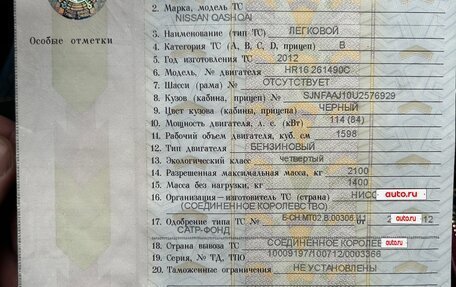 2. Марка, модель ТС
NISSAN QASHQAI
Особые отметки
3. Наименование (тип ТС) ЛЕГКОВОЙ
4. Категория ТС (А, В, С, D, прицеп) В
5. Год изготовления ТС 2012
6. Модель, № двигателя HR16 261490C
7. Шасси (рама) № ОТСУТСТВУЕТ
8. Кузов (кабина, прицеп) № SJNFAAJ10U2576929
9. Цвет кузова (кабины, прицепа) ЧЕРНЫЙ
10. Мощность двигателя, л. с. (кВт) 114 (84)
11. Рабочий объем двигателя, куб. см 1598
12. Тип двигателя БЕНЗИНОВЫЙ
13. Экологический класс четвертый
14. Разрешенная максимальная масса, кг 2100
15. Масса без нагрузки, кг 1400
16. Организация—изготовитель ТС (страна) НИСС auto.ru
(СОЕДИНЕННОЕ КОРОЛЕВСТВО)
17. Одобрение типа ТС № E-CH.MT02.B.00305 auto.ru 12
САТР-ФОНД
18. Страна вывоза ТС СОЕДИНЕННОЕ КОРОЛЕВ auto.ru
19. Серия, № ТД, ТПО 10009197/100712/0003366
20. Таможенные ограничения НЕ УСТАНОВЛЕНЫ